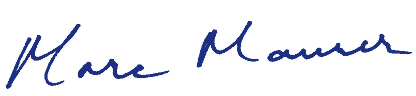 Marc Maurer